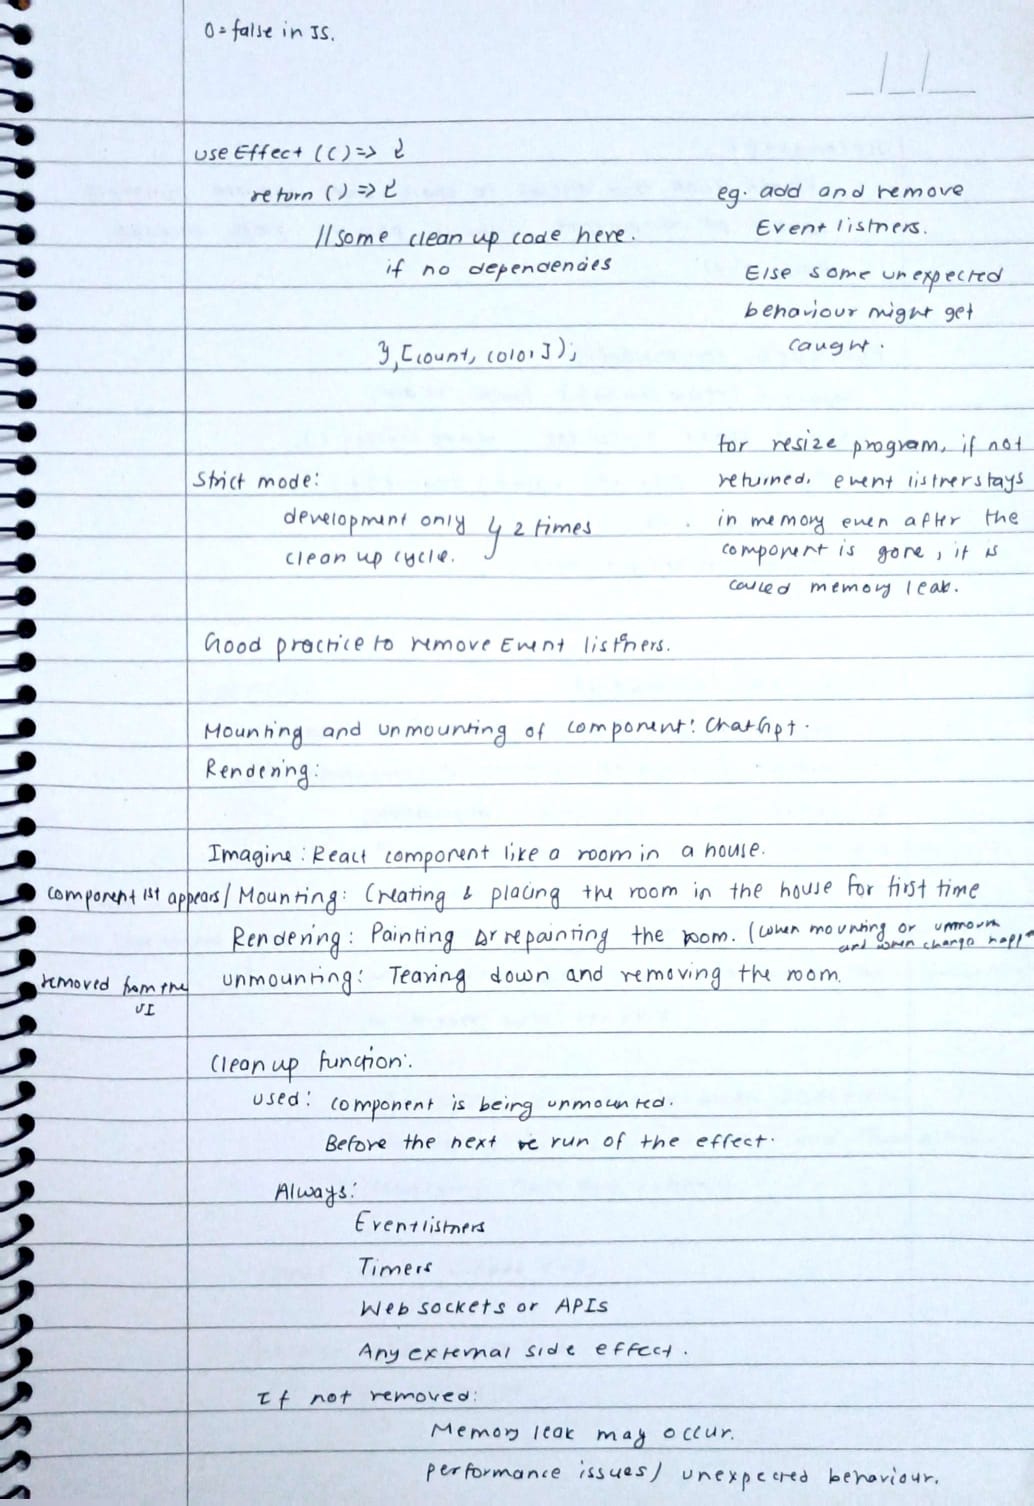 0 = false in JS.
useEffect (() => {
return () => {
// some clean up code here.
if no dependencies
}, [count, color]);
eg. add and remove
Event listners.
Else some unexpected
behaviour might get
caught.
for resize program, if not
returned, event listner stays
in memory even after the
component is gone, it is
called memory leak.
Strict mode:
development only } 2 times
clean up cycle.
Good practice to remove Event listners.
Mounting and unmounting of component: ChatGpt.
Rendering:
Imagine: React component like a room in a house.
component 1st appears / Mounting: Creating & placing the room in the house for first time
Rendering: Painting or repainting the room. (when mounting or unmoun
and when change happ
removed from the UI
unmounting: Tearing down and removing the room.
Clean up function:
used: component is being unmounted.
Before the next run of the effect.
Always:
Eventlistners
Timers
Web sockets or APIs
Any external side effect.
If not removed:
Memory leak may occur.
performance issues / unexpected behaviour.